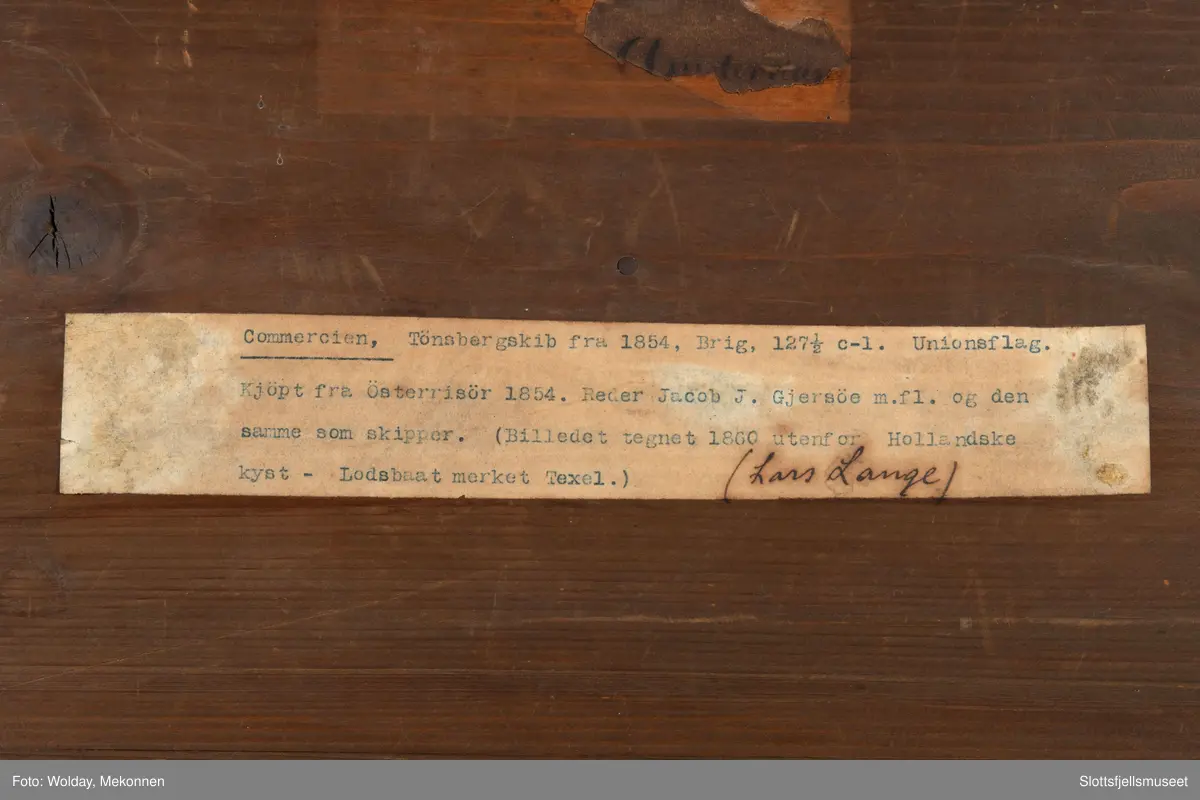 Commercien, Tönsbergskib fra 1854, Brig, 127½ c-l. Unionsflag.
Kjöpt fra Österrisör 1854. Reder Jacob J. Gjersöe m.fl. og den
samme som skipper. (Billedet tegnet 1860 utenfor Hollandske
kyst - Lodsbaat merket Texel.) (Lars Lange)
Foto: Wolday, Mekonnen
Slottsfjellsmuseet